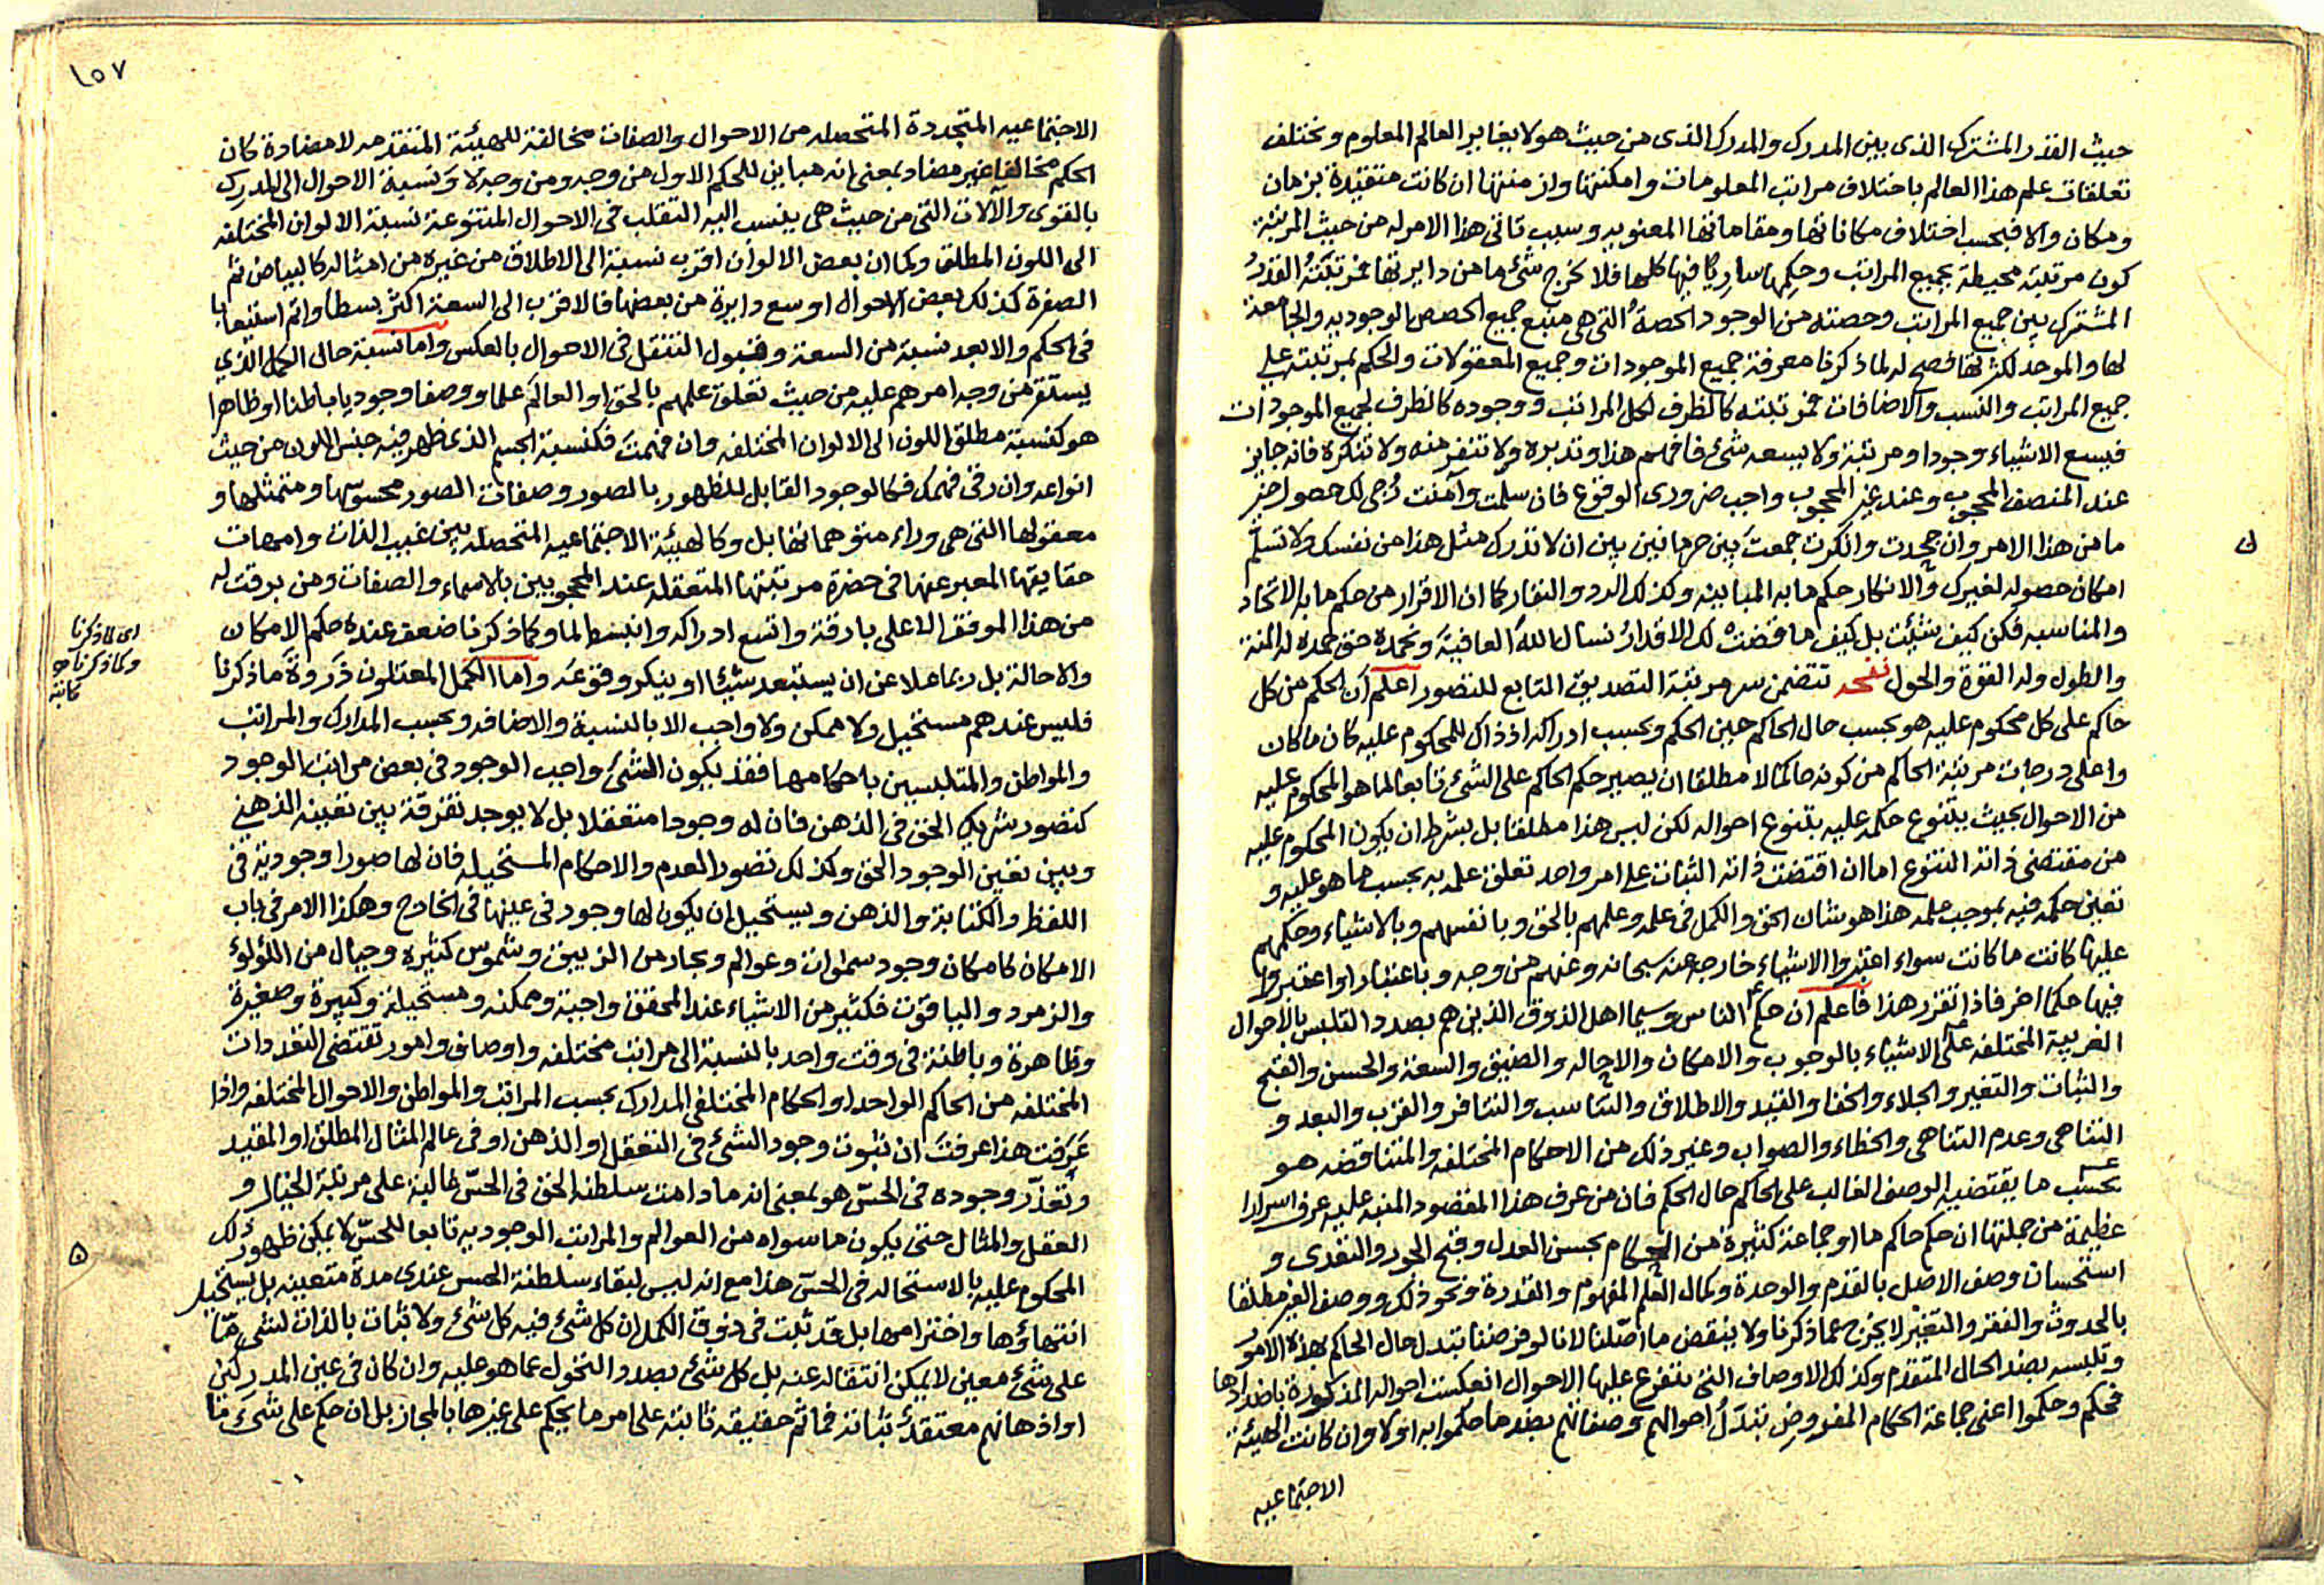 حيث القدر المشترك الذى بين المدرك والمدرك الذى من حيث هو لا يغاير العالم المعلوم وتختلف
تعلقات علم هذا العالم باختلاف مراتب المعلومات وامكنتها وازمنتها ان كانت متقيدة بزمان
ومكان والا فبحسب اختلاف مكاناتها ومقاماتها المعنويه وسبب تاتى هذا الامر له من حيث المرتبة
كون مرتبته محيطة بجميع المراتب وحكمها ساريا فيها كلها فلا تخرج شئ ما من دايرتها فمرتبته القدر
المشترك بين جميع المراتب وحصته من الوجود الحصة التى هى منبع جميع الحصص الوجوديه والجامعة
لها والموحد لكثرتها فصح له لما ذكرنا معرفة جميع الموجودات وجميع المعقولات والحكم بمرتبته على
جميع المراتب والنسب والاضافات فمرتبته كالظرف لكل المراتب ووجوده كالظرف لجميع الموجودات
فيسع الاشياء وجودا ومرتبة ولا يسعه شئ فافهم هذا وتدبره ولا تنفر منه ولا تنكره فانه جايز
عند المنصف المحجوب وعند غير المحجوب واجب ضرورى الوقوع فان سلمت وآمنت رجى لك حصول خير
ما من هذا الامر وان جحدت وانكرت جمعت بين حرمانين بين ان لا تدرك مثل هذا من نفسك ولا تسلم
امكان حصوله لغيرك والانكار حكم ما به المباينه وكذلك الرد والنفار كما ان الاقرار من حكم ما به الاتحاد
والمناسبه فكن كيف شئت بل كيف ما قضت لك الاقدار نسال الله العافية ونحمده حق حمده له المنة
والطول وله القوة والحول نفحه تتضمن سر مرتبة التصديق التابع للتصور اعلم ان الحكم من كل
حاكم على كل محكوم عليه هو بحسب حال الحاكم حين الحكم وبحسب ادراكه اذ ذاك للمحكوم عليه كان ما كان
واعلى درجات مرتبة الحاكم من كونه حاكما لا مطلقا ان يصير حكم الحاكم على الشئ تابعا لما هو المحكوم عليه
من الاحوال بحيث يتنوع حكمه عليه بتنوع احواله لكن ليس هذا مطلقا بل بشرط ان يكون المحكوم عليه
من مقتضى ذاته التنوع اما ان اقتضت ذاته الثبات على امر واحد تعلق علمه به بحسب ما هو عليه و
تعين حكمه فيه بموجب علمه هذا هو شان الحق والكمل فى علمه وعلمهم بالحق وبانفسهم وبالاشياء وحكمهم
عليها كانت ما كانت سواء اعتبروا الاشياء خارجه عنه سبحانه وعنهم من وجه وباعتبار او اعتبروا
فيها حكما اخر فاذا تقرر هذا فاعلم ان حكم الناس وسيما اهل الذوق الذين هم بصدد التلبس بالاحوال
الغريبة المختلفه على الاشياء بالوجوب والامكان والاحاله والضيق والسعة والحسن والقبح
والثبات والتغير والجلاء والخفا والقيد والاطلاق والتناسب والتنافر والقرب والبعد و
التناهى وعدم التناهى والخطاء والصواب وغير ذلك من الاحكام المختلفه والمتناقضه هو
بحسب ما يقتضيه الوصف الغالب على الحاكم حال الحكم فان من عرف هذا المقصود المنبه عليه عرف اسرارا
عظيمة من جملتها ان حكم حاكم ما او جماعة كثيرة من الحكام بحسن العدل وقبح الجور والتعدى و
استحسان وصف الاصل بالقدم والوحدة وكمال العلم المفهوم والقدرة ونحو ذلك ووصف الغير مطلقا
بالحدوث والفقر والتغير لا يخرج عما ذكرنا ولا ينقض ما اصلنا لانا لو فرضنا تبدل حال الحاكم بهذه الامور
وتلبسه بضد الحال المتقدم وكذلك الاوصاف التى تتفرع عليها الاحوال انعكست احواله المذكورة باضدادها
فحكم وحكموا اعنى جماعة الحكام المفروض تبدل احوالهم وصفاتهم بضد ما حكموا به اولا وان كانت الهيئة
الاجتماعيه
١٥٧
الاجتماعيه المتجددة المتحصله من الاحوال والصفات مخالفة للهيئة المتقدمه لا مضادة كان
الحكم مخالفا غير مضاد بمعنى انه مباين للحكم الاول من وجه ومن وجه لا ونسبة الاحوال الى المدرك
بالقوى والآلات التى من حيث هى ينسب اليه التقلب فى الاحوال المتنوعة نسبة الالوان المختلفه
الى اللون المطلق وكما ان بعض الالوان اقرب نسبة الى الاطلاق من غيره من امثاله كالبياض ثم
الصفرة كذلك بعض الاحوال اوسع دايرة من بعضها فالاقرب الى السعة اكثر بسطا واتم استيعابا
فى الحكم والابعد نسبة من السعة وقبول التنقل فى الاحوال بالعكس واما نسبة حال الكمل الذي
يستقر من وجه امرهم عليه من حيث تعلق علمهم بالحق او العالم علما ووصفا وجوديا باطنا او ظاهرا
هو كنسبة مطلق اللون الى الالوان المختلفه وان فهمت فكنسبة الجسم الذى ظهر فيه جنس اللون من حيث
انواعه وان رقى فهمك فكالوجود القابل للظهور بالصور وصفات الصور محسوسها ومتمثلها و
معقولها التى هى وراء متوهماتها بل وكالهيئة الاجتماعيه المتحصله بين غيب الذات وامهات
حقايقها المعبر عنها فى حضرة مرتبتها المتعقله عند المحجوبين بالاسماء والصفات ومن برقت له
من هذا الموقف الاعلى بارقة واتسع ادراكه وانبسط لما وكما ذكرنا ضعف عنده حكم الامكان
والاحالة بل ربما علا عن ان يستبعد شيئا او ينكر وقوعه واما الكمل المعتلون ذروة ما ذكرنا
فليس عندهم مستحيل ولا ممكن ولا واجب الا بالنسبة والاضافه وبحسب المدارك والمراتب
والمواطن والمتلبسين باحكامها فقد يكون الشئ واجب الوجود فى بعض مراتب الوجود
كتصور شريك الحق فى الذهن فان له وجودا متعقلا بل لا يوجد تفرقة بين تعينه الذهنى
وبين تعين الوجود الحق وكذلك تصور العدم والاحكام المستحيله فان لها صورا وجودية فى
اللفظ والكتابة والذهن ويستحيل ان يكون لها وجود فى عينها فى الخارج وهكذا الامر فى باب
الامكان كامكان وجود سموات وعوالم وبحار من الزيبق وشموس كثيره وجبال من اللؤلوء
والزمرد والياقوت فكثير من الاشياء عند المحقق واجبة وممكنه ومستحيلة وكبيرة وصغيرة
وظاهرة وباطنة فى وقت واحد بالنسبة الى مراتب مختلفه واوصاف وامور تقتضى التعددات
المختلفه من الحاكم الواحد او الحكام المختلفى المدارك بحسب المراتب والمواطن والاحوال المختلفه واذا
عرفت هذا عرفت ان ثبوت وجود الشئ فى التعقل او الذهن او فى عالم المثال المطلق او المقيد
وتعذر وجوده فى الحس هو بمعنى انه ما دامت سلطنة الحق فى الحس غالبة على مرتبة الخيال و
العقل والمثال حتى يكون ما سواه من العوالم والمراتب الوجوديه تابعا للحس لا يمكن ظهور ذلك
المحكوم عليه بالاستحاله فى الحس هذا مع انه ليس لبقاء سلطنة الحس عندى مدة متعينه بل يستحيل
انتهاؤها واخترامها بل قد ثبت فى ذوق الكمل ان كل شئ فيه كل شئ ولا ثبات بالذات لشئ ما
على شئ معين لا يمكن انتقاله عنه بل كل شئ بصدد التحول عما هو عليه وان كان فى عين المدركين
او اذهانهم معتقد ثباته فما ثم حقيقه ثابته على امر ما يحكم على غيرها بالمجاز بل ان حكم على شئ ما
اى لما ذكرنا
وكما ذكرنا